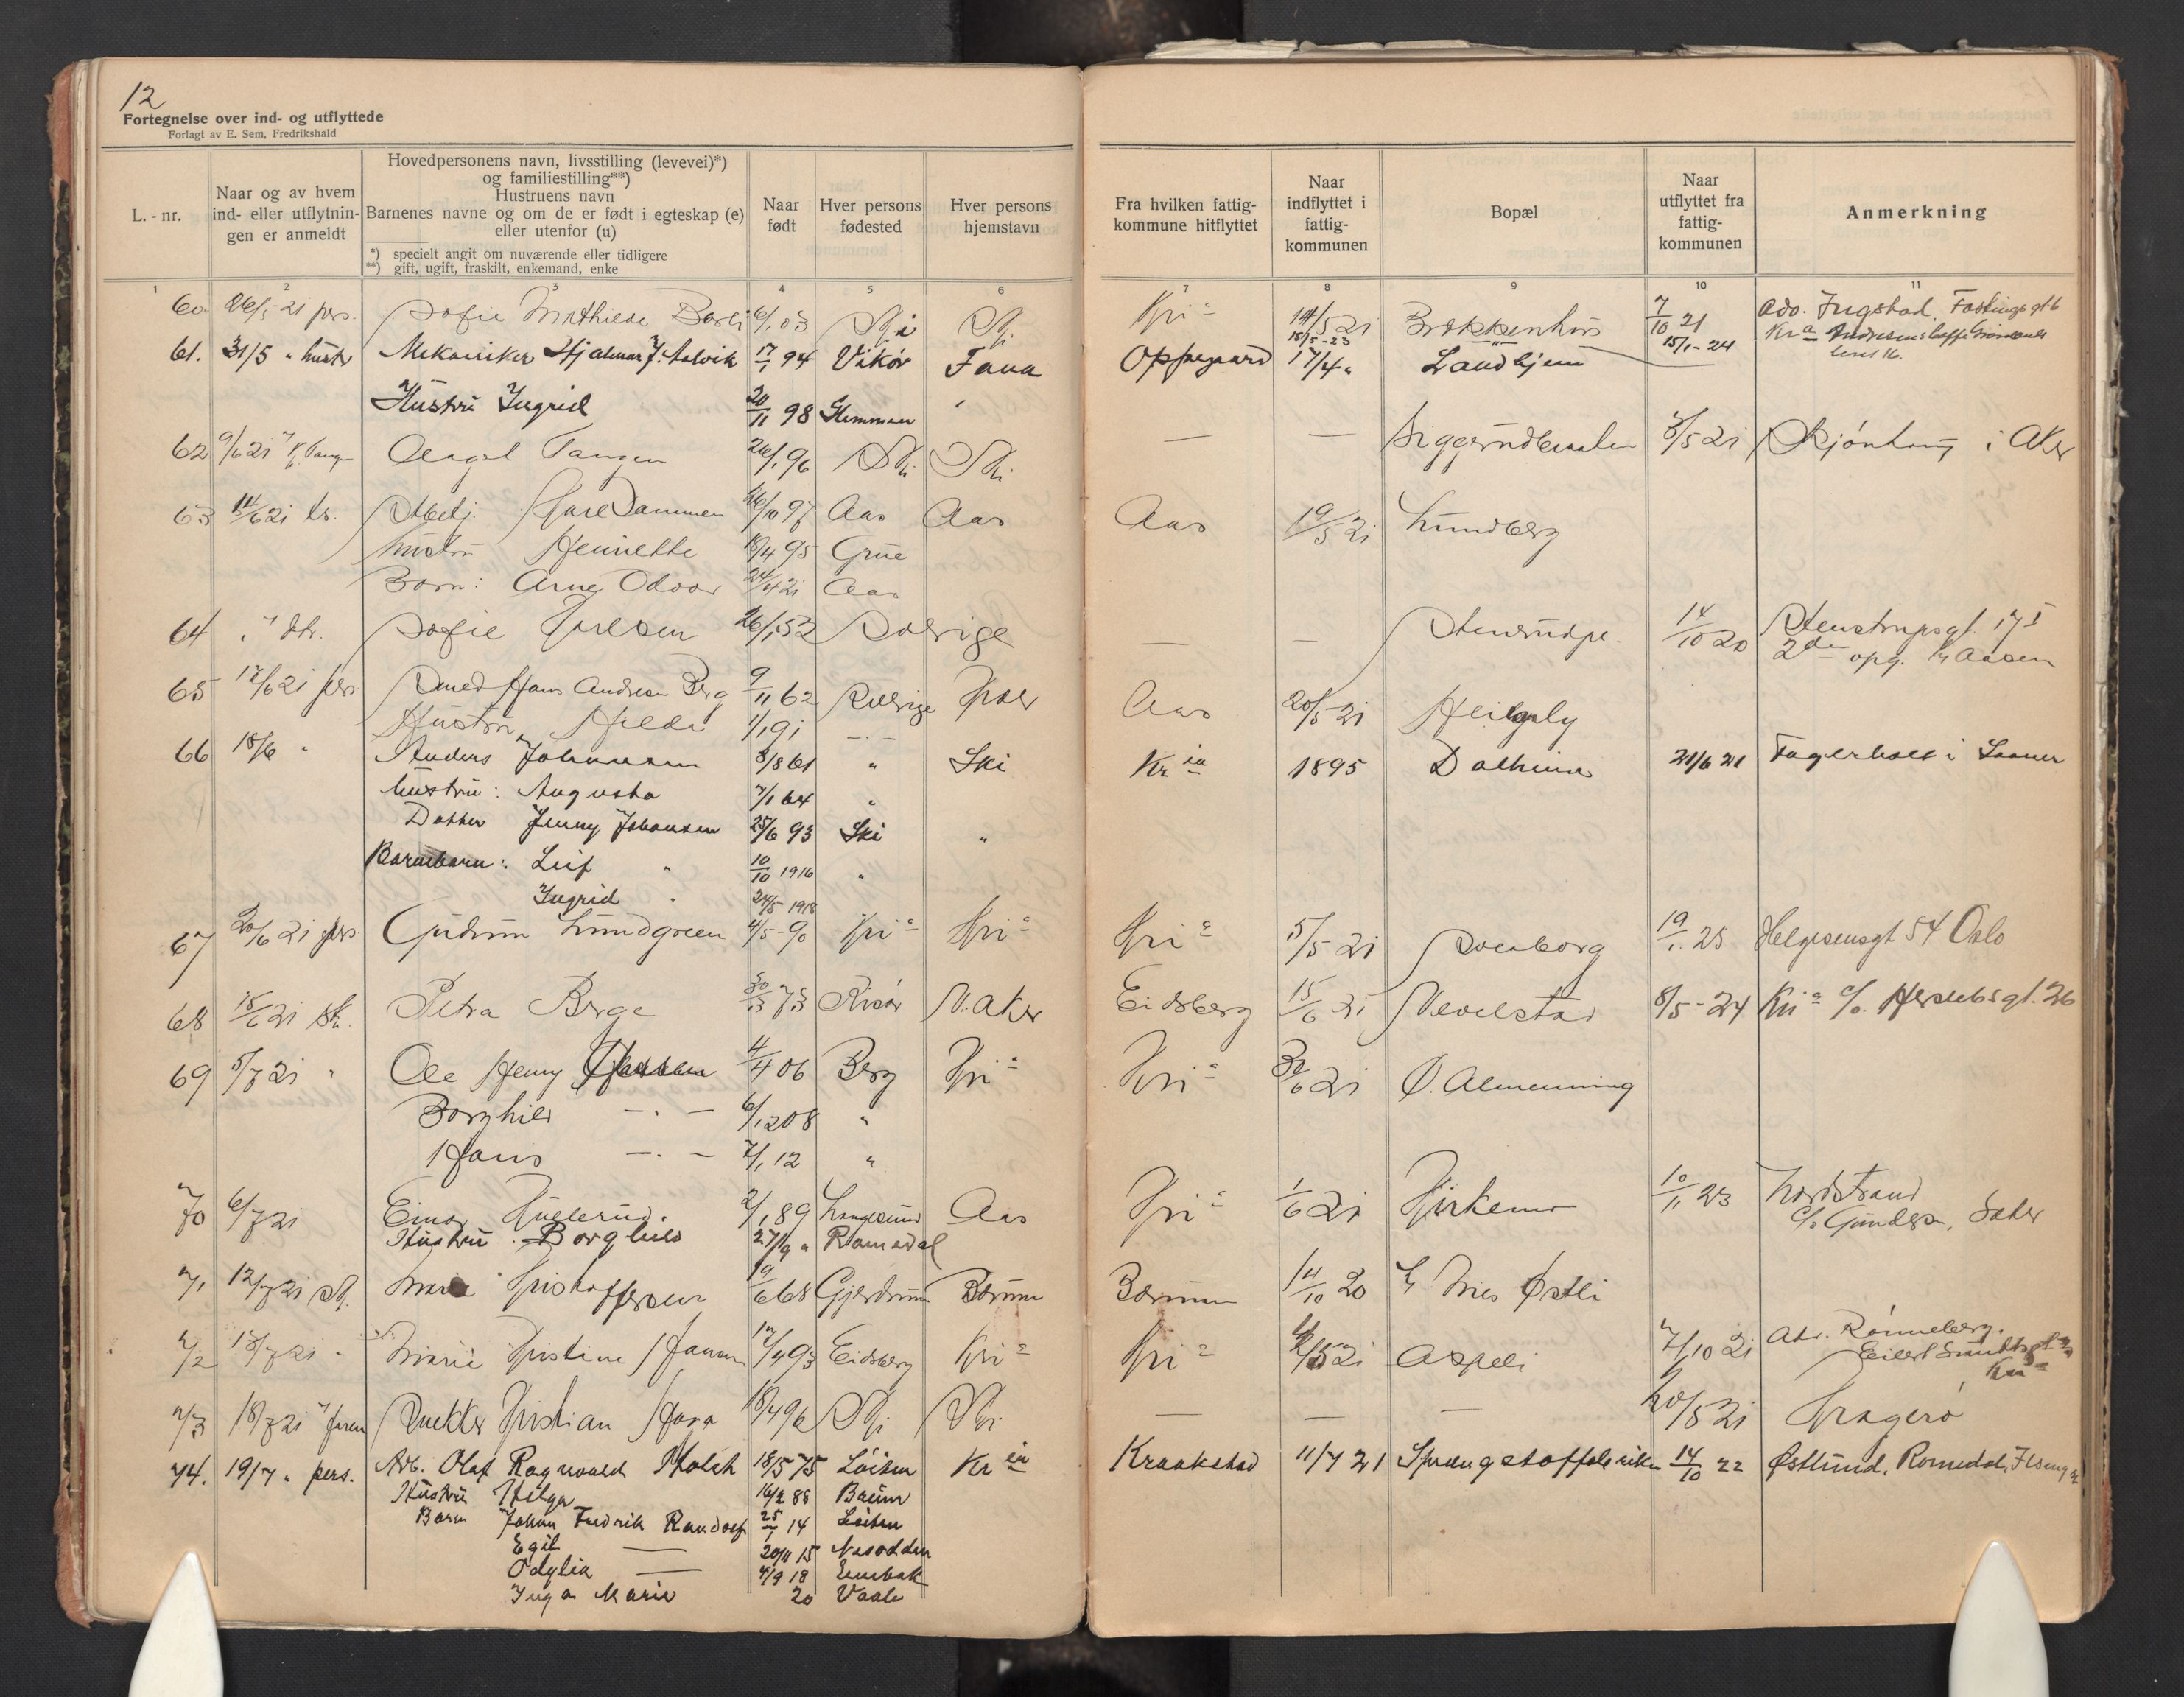 12
Fortegnelse over ind- og utflyttede
Forlagt av E. Sem, Fredrikshald
L. - nr.
Naar og av hvem
ind- eller utflytnin-
gen er anmeldt
Hovedpersonens navn, livsstilling (levevei)*)
og familiestilling**)
Hustruens navn
Barnenes navne og om de er født i egteskap (e)
eller utenfor (u)
*) specielt angit om nuværende eller tidligere
**) gift, ugift, fraskilt, enkemand, enke
Naar
født
Hver persons
fødested
Hver persons
hjemstavn
Fra hvilken fattig-
kommune hitflyttet
Naar
indflyttet i
fattig-
kommunen
Bopæl
Naar
utflyttet fra
fattig-
kommunen
Anmerkning
1 2 3 4 5 6 7 8 9 10 11
60 26/5 21 pers. Sofie Mathilde 6/1 03 Ski Ski Kria 14/5 21 7/10 21 Adv. Ingstad,
15/5-23 15/1-24 Kra
61. 31/5 " hustr Mekaniker Hjalmar J. Aalvik 17/1 94 Vikör Fana Oppegaard 17/4 " Landhjem
Hustru Ingrid 20/11 98 Glemmen "
62 9/6 21 Aagot Tangen 26/1 96 Ski Ski — — 3/5 21 i Aker
63 14/6 21 Arbeidj. Karl Dammen 26/10 97 Aas Aas Aas 19/5 21 Lundberg
hustru Henriette 18/4 95 Grue
Barn: Arne Odvar 24/4 21 Aas
64 Sofie Karlsen 26/1 52 Sverige — — 14/10 20 Stenstrupsgt. 17 I
2den opg. Aasen
65 17/6 21 pers. Smed Hans Andreas Berg 9/11 62 Sverige Aas 20/5 21
Hustru Hilda 1/1 91 —"—
66 18/6 " Anders Johansen 3/8 61 " Ski Kr ia 1895 21/6 21 Fagerholt i Saaner
hustru: Augusta 7/1 64 "
Datter Jenny Johansen 25/6 93 Ski "
Barnebarn: Leif " 10/10 1916 "
Ingrid " 24/5 1918
67 20/6 21 pers Gudrun Lundgreen 4/5-90 Kria Kria Kria 5/5 21 Solborg 19/1 25 Helgesensgt 54 Oslo
68 18/6 21 Petra Berge 73 Risör V. Aker Eidsberg 15/6 21 Vevelstad 8/5-24 Kria c/o. Herslebsgt. 26
69 5/7 21 " Ole Henry Hansen 4/4 06 Berg Kria Kria 30/6 21 Ø. Almenning
Borghild —"— 6/12 08 "
Hans —"— 7/1 12 "
70 6/7 21 Einar 2/1 89 Langesund Aas Kria 1/6 21 Kirkemo 10/11 23 Nordstrand
c/o Gundersen,
Hustru: Borghild 27/9 " Romsdal
71 12/7 21 Marie Kristoffersen 19/6 68 Gjerdrum Bærum Bærum 14/10 20 Østli
72 13/7 21 " Marie Kristine Hansen 17/4 93 Eidsberg Kria Kria 21 Aspeli 7/10 21 Adr. Rønneberg.
Eilert Sundtsgt
Kria
73 18/7 21 Kristian 18/4 96 Ski Ski — — — 20/5 21 Kragerø
74. 19/7 " pers. Arb. Olaf Ragnvald 18/5 75 Löiten Kr ia Kraakstad 11/7 21 Sprængstoffabriken 14/10 22 Østlund, Romedal,
Hustru Helga 16/2 88
Barn Johan Fredrik Randolf 25/1 14 Löiten
Egil — 20/11 15 Nesodden
Odylia — 4/9 18 Enebak
Inga Marie 20 Vaale